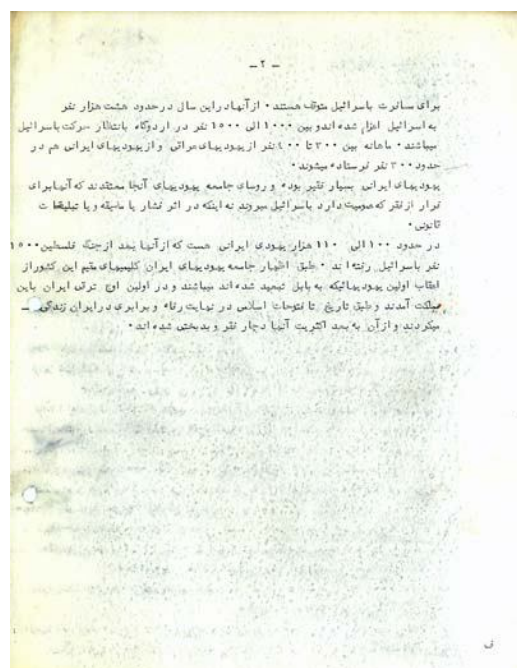 - ۲ -
برای مسافرت باسرائیل متوقف هستند • از آنها در این سال در حدود هشت هزار نفر
به اسرائیل اعزام شده اند و بین ۱۰۰۰ الی ۱۵۰۰ نفر در اردوگاه بانتظار حرکت باسرائیل
میباشند • ماهانه بین ۳۰۰ تا ۴۰۰ نفر از یهودیهای عراقی و از یهودیهای ایرانی هم در
حدود ۳۰۰ نفر فرستاده میشوند •
یهودیهای ایرانی بسیار فقیر بوده و روسای جامعه یهودیهای آنجا معتقدند که آنها برای
فرار از فقر که عمومیت دارد باسرائیل میروند نه اینکه در اثر فشار یا مضیقه و یا تبلیغات
قانونی •
در حدود ۱۰۰ الی ۱۱۰ هزار یهودی ایرانی هست که از آنها بعد از جنگ فلسطین ۱۵۰۰
نفر باسرائیل رفته اند • طبق اظهار جامعه یهودیهای ایران کلیمیهای مقیم این کشور از
اعقاب اولین یهودیهائیکه به بابل تبعید شده اند میباشند و در اولین اوج ترقی ایران باین
مملکت آمدند و طبق تاریخ تا فتوحات اسلامی در نهایت رفاه و برابری در ایران زندگی -
میکردند و از آن به بعد اکثریت آنها دچار فقر و بدبختی شده اند •
ف